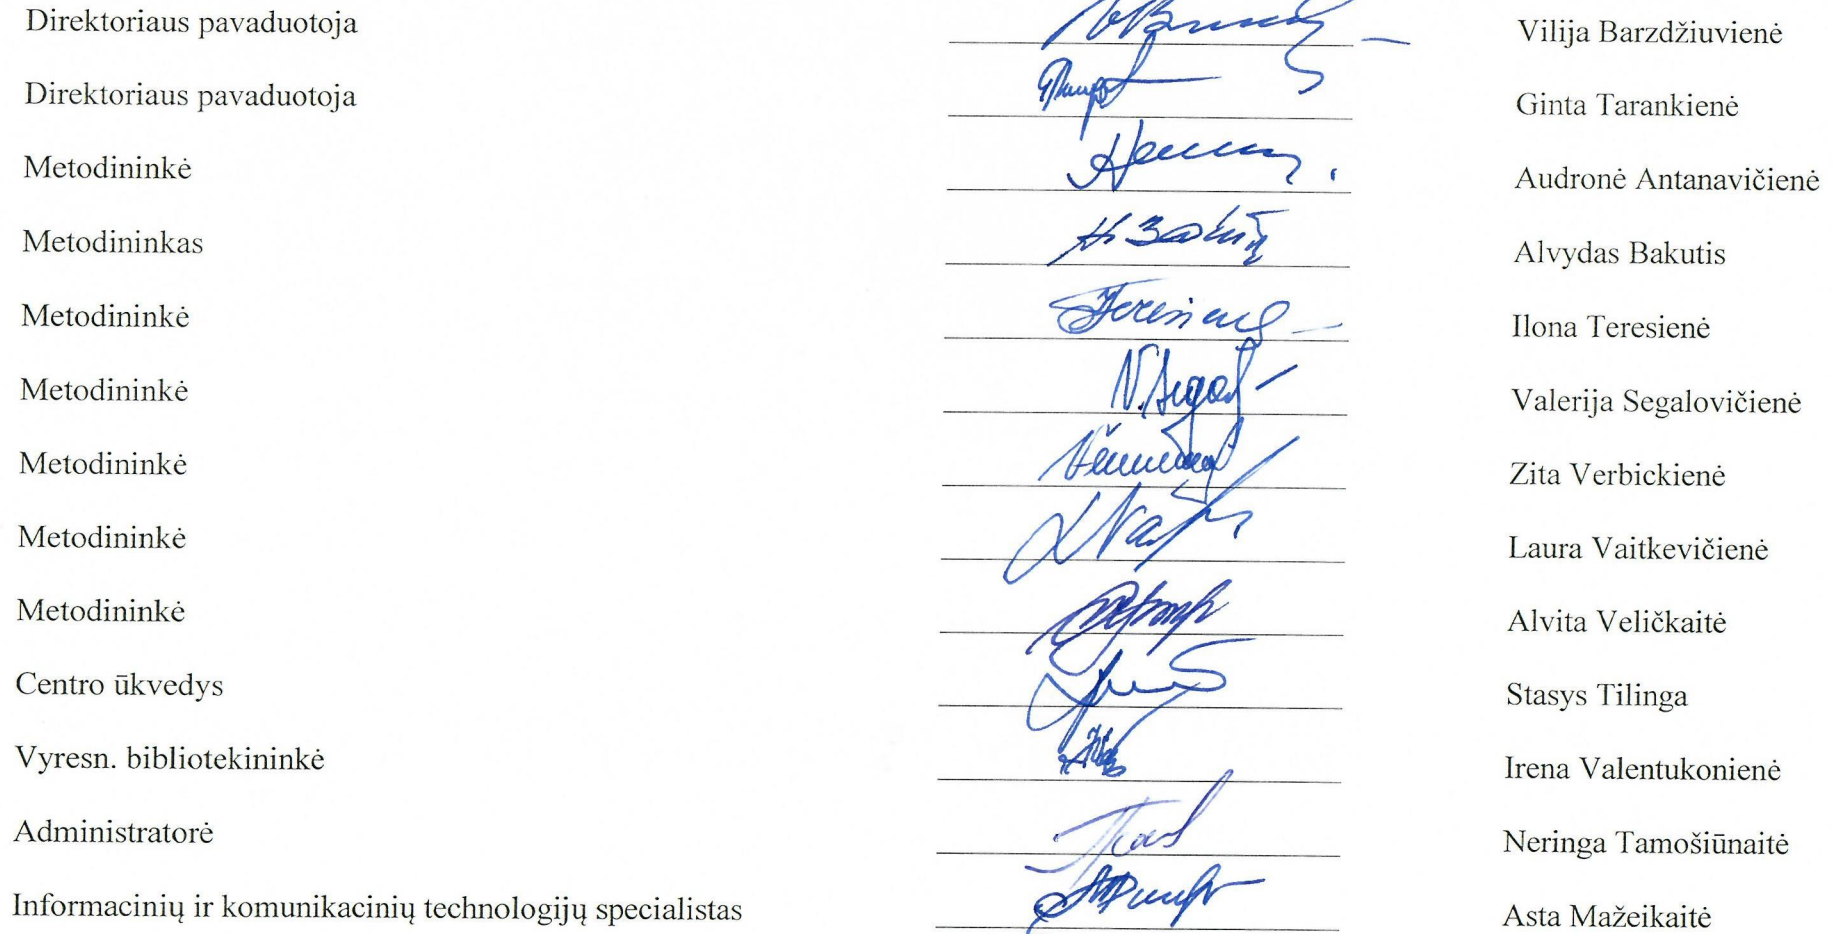 Direktoriaus pavaduotoja Vilija Barzdžiuvienė
Direktoriaus pavaduotoja Ginta Tarankienė
Metodininkė Audronė Antanavičienė
Metodininkas Alvydas Bakutis
Metodininkė Ilona Teresienė
Metodininkė Valerija Segalovičienė
Metodininkė Zita Verbickienė
Metodininkė Laura Vaitkevičienė
Metodininkė Alvita Veličkaitė
Centro ūkvedys Stasys Tilinga
Vyresn. bibliotekininkė Irena Valentukonienė
Administratorė Neringa Tamošiūnaitė
Informacinių ir komunikacinių technologijų specialistas Asta Mažeikaitė